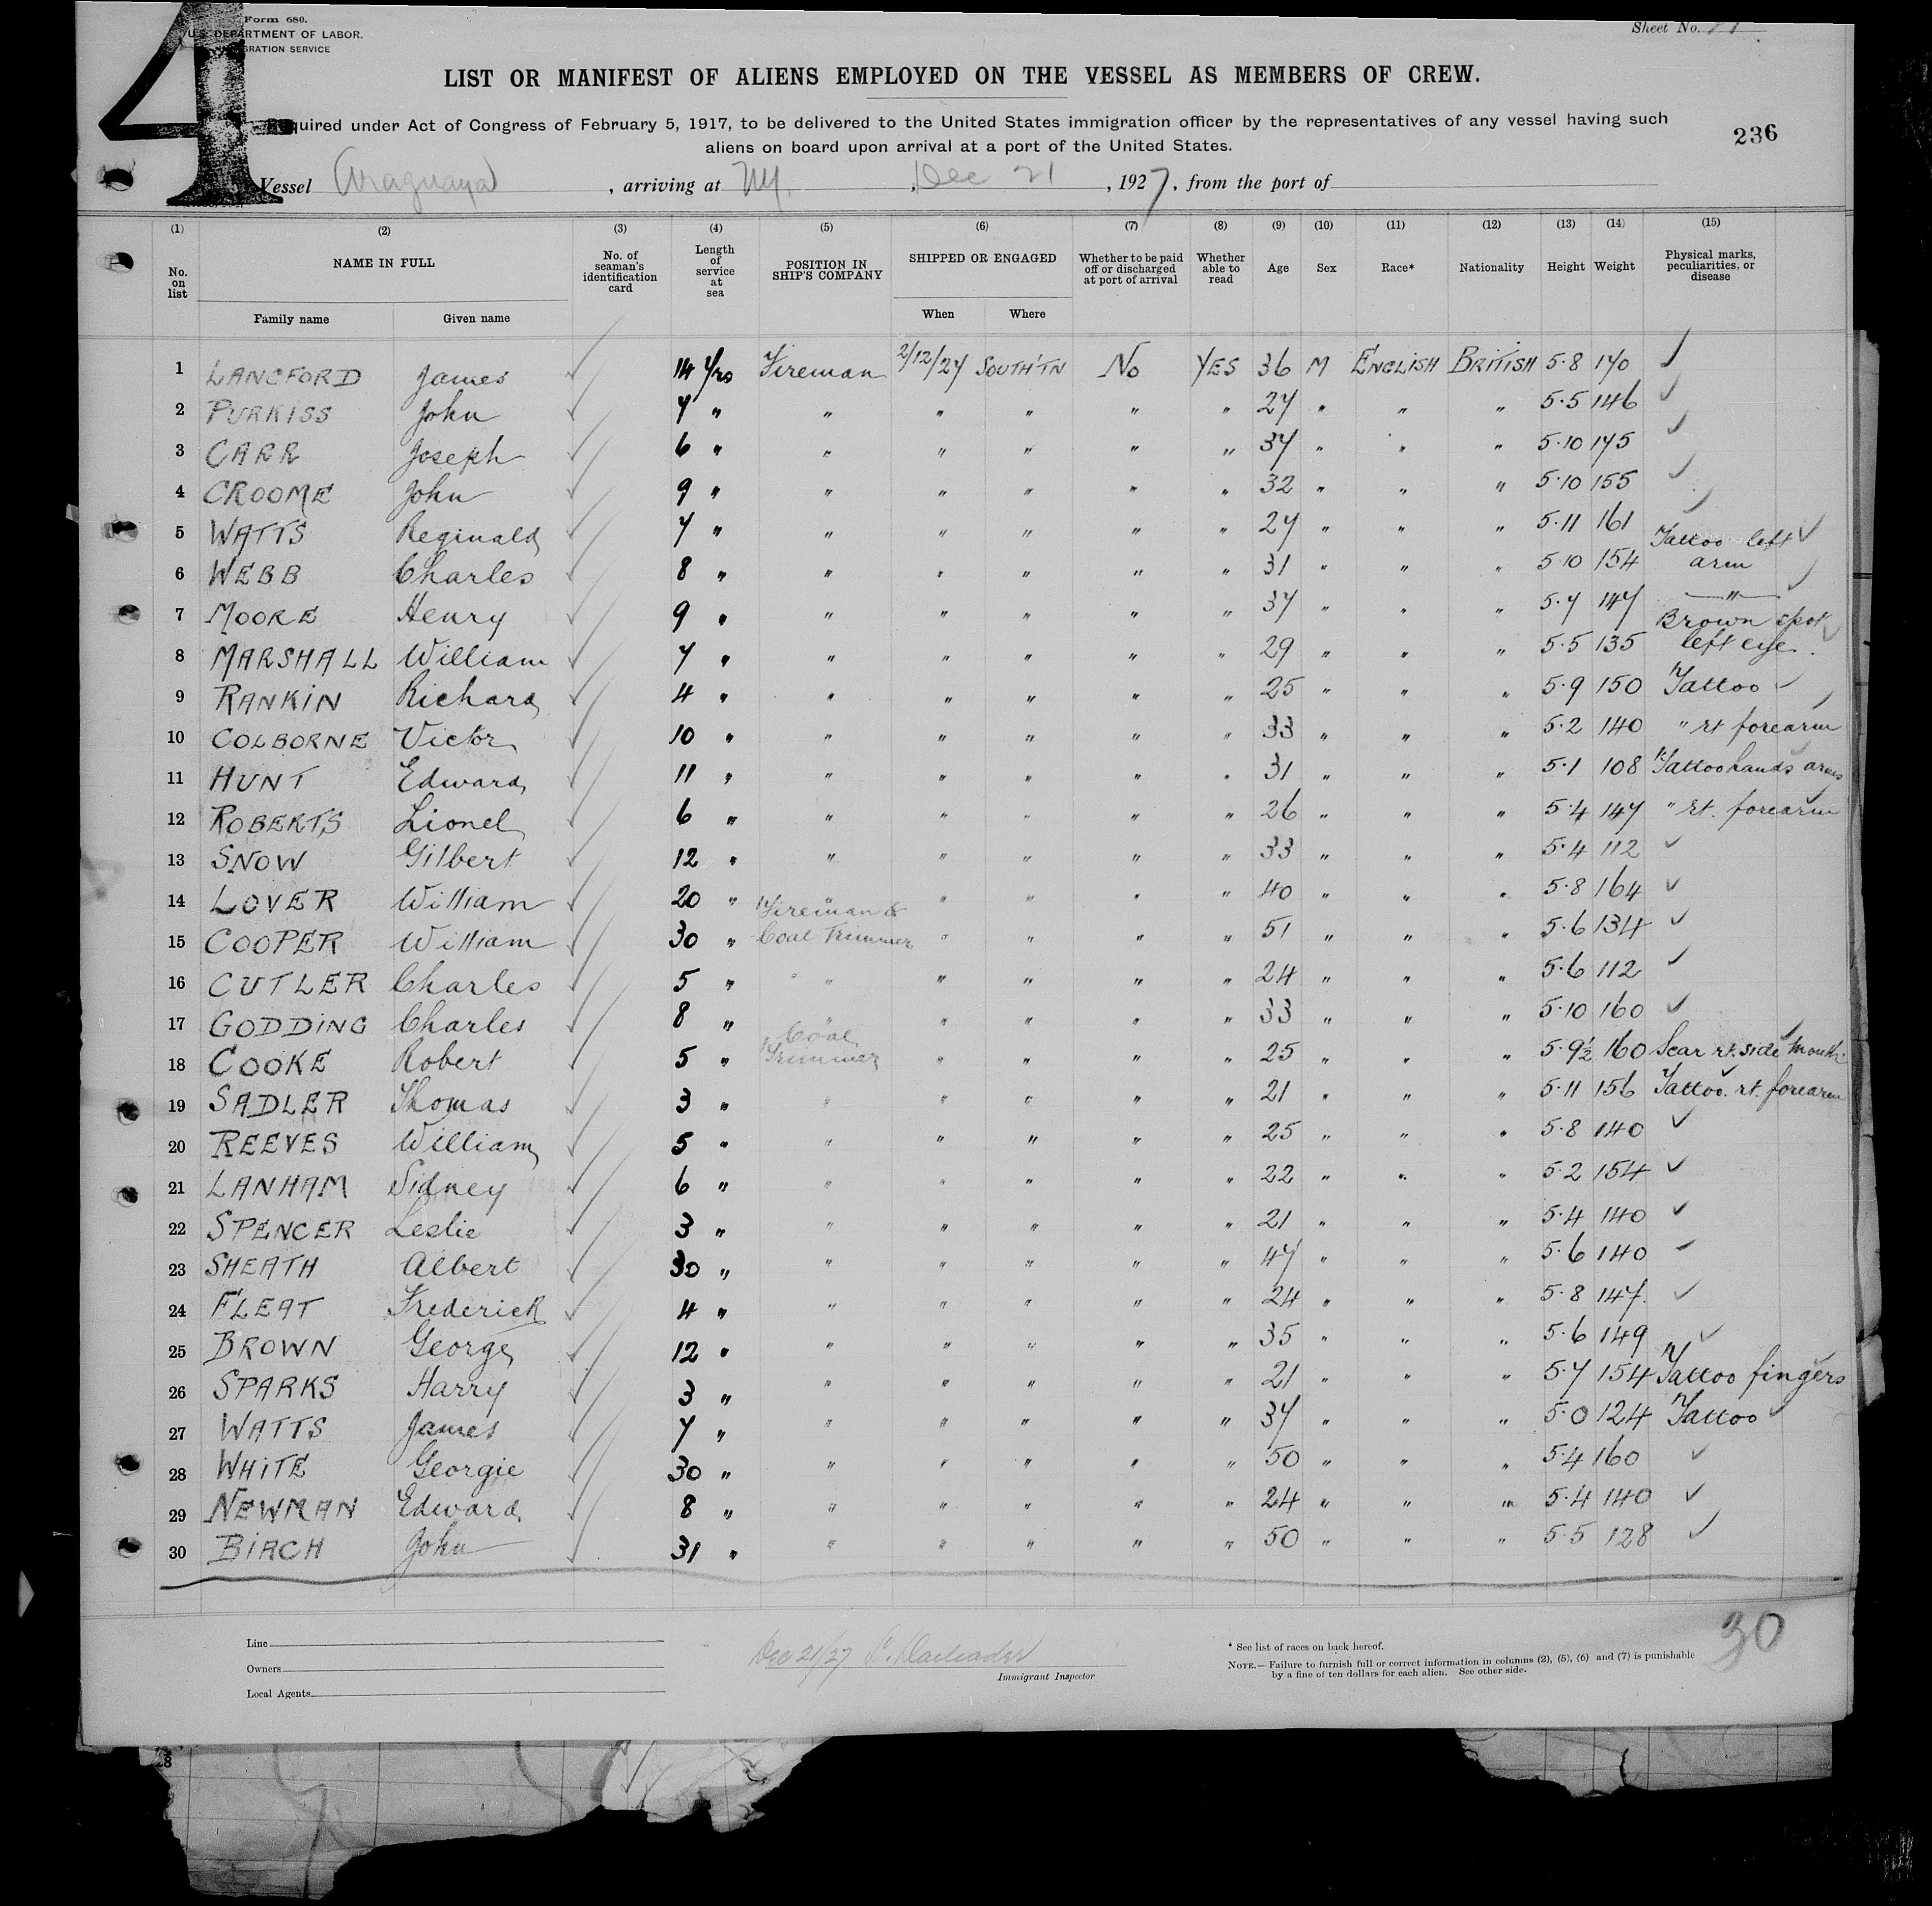 4
Form 680.
U.S. DEPARTMENT OF LABOR.
IMMIGRATION SERVICE
Sheet No.
LIST OR MANIFEST OF ALIENS EMPLOYED ON THE VESSEL AS MEMBERS OF CREW.
Required under Act of Congress of February 5, 1917, to be delivered to the United States immigration officer by the representatives of any vessel having such
aliens on board upon arrival at a port of the United States.
236
Vessel Araguaya, arriving at NY., Dec 21, 1927, from the port of
(1) (2) (3) (4) (5) (6) (7) (8) (9) (10) (11) (12) (13) (14) (15)
No. on list NAME IN FULL No. of seaman's identification card Length of service at sea POSITION IN SHIP'S COMPANY SHIPPED OR ENGAGED Whether to be paid off or discharged at port of arrival Whether able to read Age Sex Race* Nationality Height Weight Physical marks, peculiarities, or disease
Family name Given name When Where
1 LANGFORD James 14 yrs Fireman 2/12/27 SOUTH'TN No YES 36 M ENGLISH BRITISH 5.8 170
2 PURKISS John 7 " " " " " " 27 " " " 5.5 146
3 CARR Joseph 6 " " " " " " 37 " " " 5.10 175
4 CROOME John 9 " " " " " " 32 " " " 5.10 155
5 WATTS Reginald 7 " " " " " " 27 " " " 5.11 161
6 WEBB Charles 8 " " " " " " 31 " " " 5.10 154 Tattoo left arm
7 MOORE Henry 9 " " " " " " 37 " " " 5.7 147 "
8 MARSHALL William 7 " " " " " " 29 " " " 5.5 135 Brown spot left eye.
9 RANKIN Richard 4 " " " " " " 25 " " " 5.9 150 Tattoo
10 COLBORNE Victor 10 " " " " " " 33 " " " 5.2 140 " rt forearm
11 HUNT Edward 11 " " " " " " 31 " " " 5.1 108 Tattoo hands arms
12 ROBERTS Lionel 6 " " " " " " 26 " " " 5.4 147 " rt. forearm
13 SNOW Gilbert 12 " " " " " " 33 " " " 5.4 112
14 LOVER William 20 " " " " " " 40 " " " 5.8 164
15 COOPER William 30 " Fireman & Coal Trimmer " " " " 51 " " " 5.6 134
16 CUTLER Charles 5 " " " " " " 24 " " " 5.6 112
17 GODDING Charles 8 " " " " " " 33 " " " 5.10 160
18 COOKE Robert 5 " Coal Trimmer " " " " 25 " " " 5.9½ 160 Scar rt. side mouth.
19 SADLER Thomas 3 " " " " " " 21 " " " 5.11 156 Tattoo. rt. forearm
20 REEVES William 5 " " " " " " 25 " " " 5.8 140
21 LANHAM Sidney 6 " " " " " " 22 " " " 5.2 154
22 SPENCER Leslie 3 " " " " " " 21 " " " 5.4 140
23 SHEATH Albert 30 " " " " " " 47 " " " 5.6 140
24 FLEAT Frederick 4 " " " " " " 24 " " " 5.8 147.
25 BROWN George 12 " " " " " " 35 " " " 5.6 149
26 SPARKS Harry 3 " " " " " " 21 " " " 5.7 154 Tattoo fingers
27 WATTS James 7 " " " " " " 37 " " " 5.0 124 Tattoo
28 WHITE Georgie 30 " " " " " " 50 " " " 5.4 160
29 NEWMAN Edward 8 " " " " " " 24 " " " 5.4 140
30 BIRCH John 31 " " " " " " 50 " " " 5.5 128
30
Line
Owners
Local Agents
Dec 21/27
Immigrant Inspector
* See list of races on back hereof.
NOTE.—Failure to furnish full or correct information in columns (2), (5), (6) and (7) is punishable
by a fine of ten dollars for each alien. See other side.
28